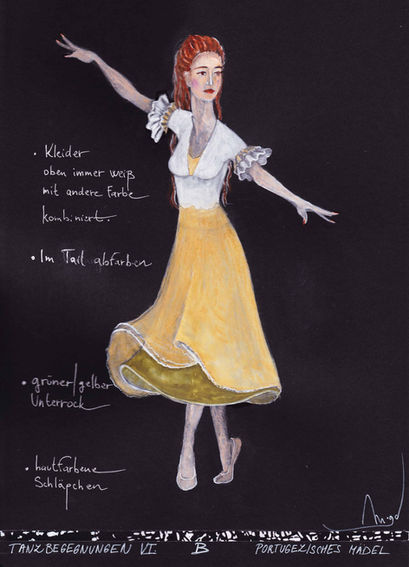 • Kleider
oben immer weiß
mit andere Farbe
kombiniert.
• Im Tail abfärben
• grüner/gelber
Unterrock
• hautfarbene
Schläpchen
TANZBEGEGNUNGEN VI B PORTUGEZISCHES MÄDEL